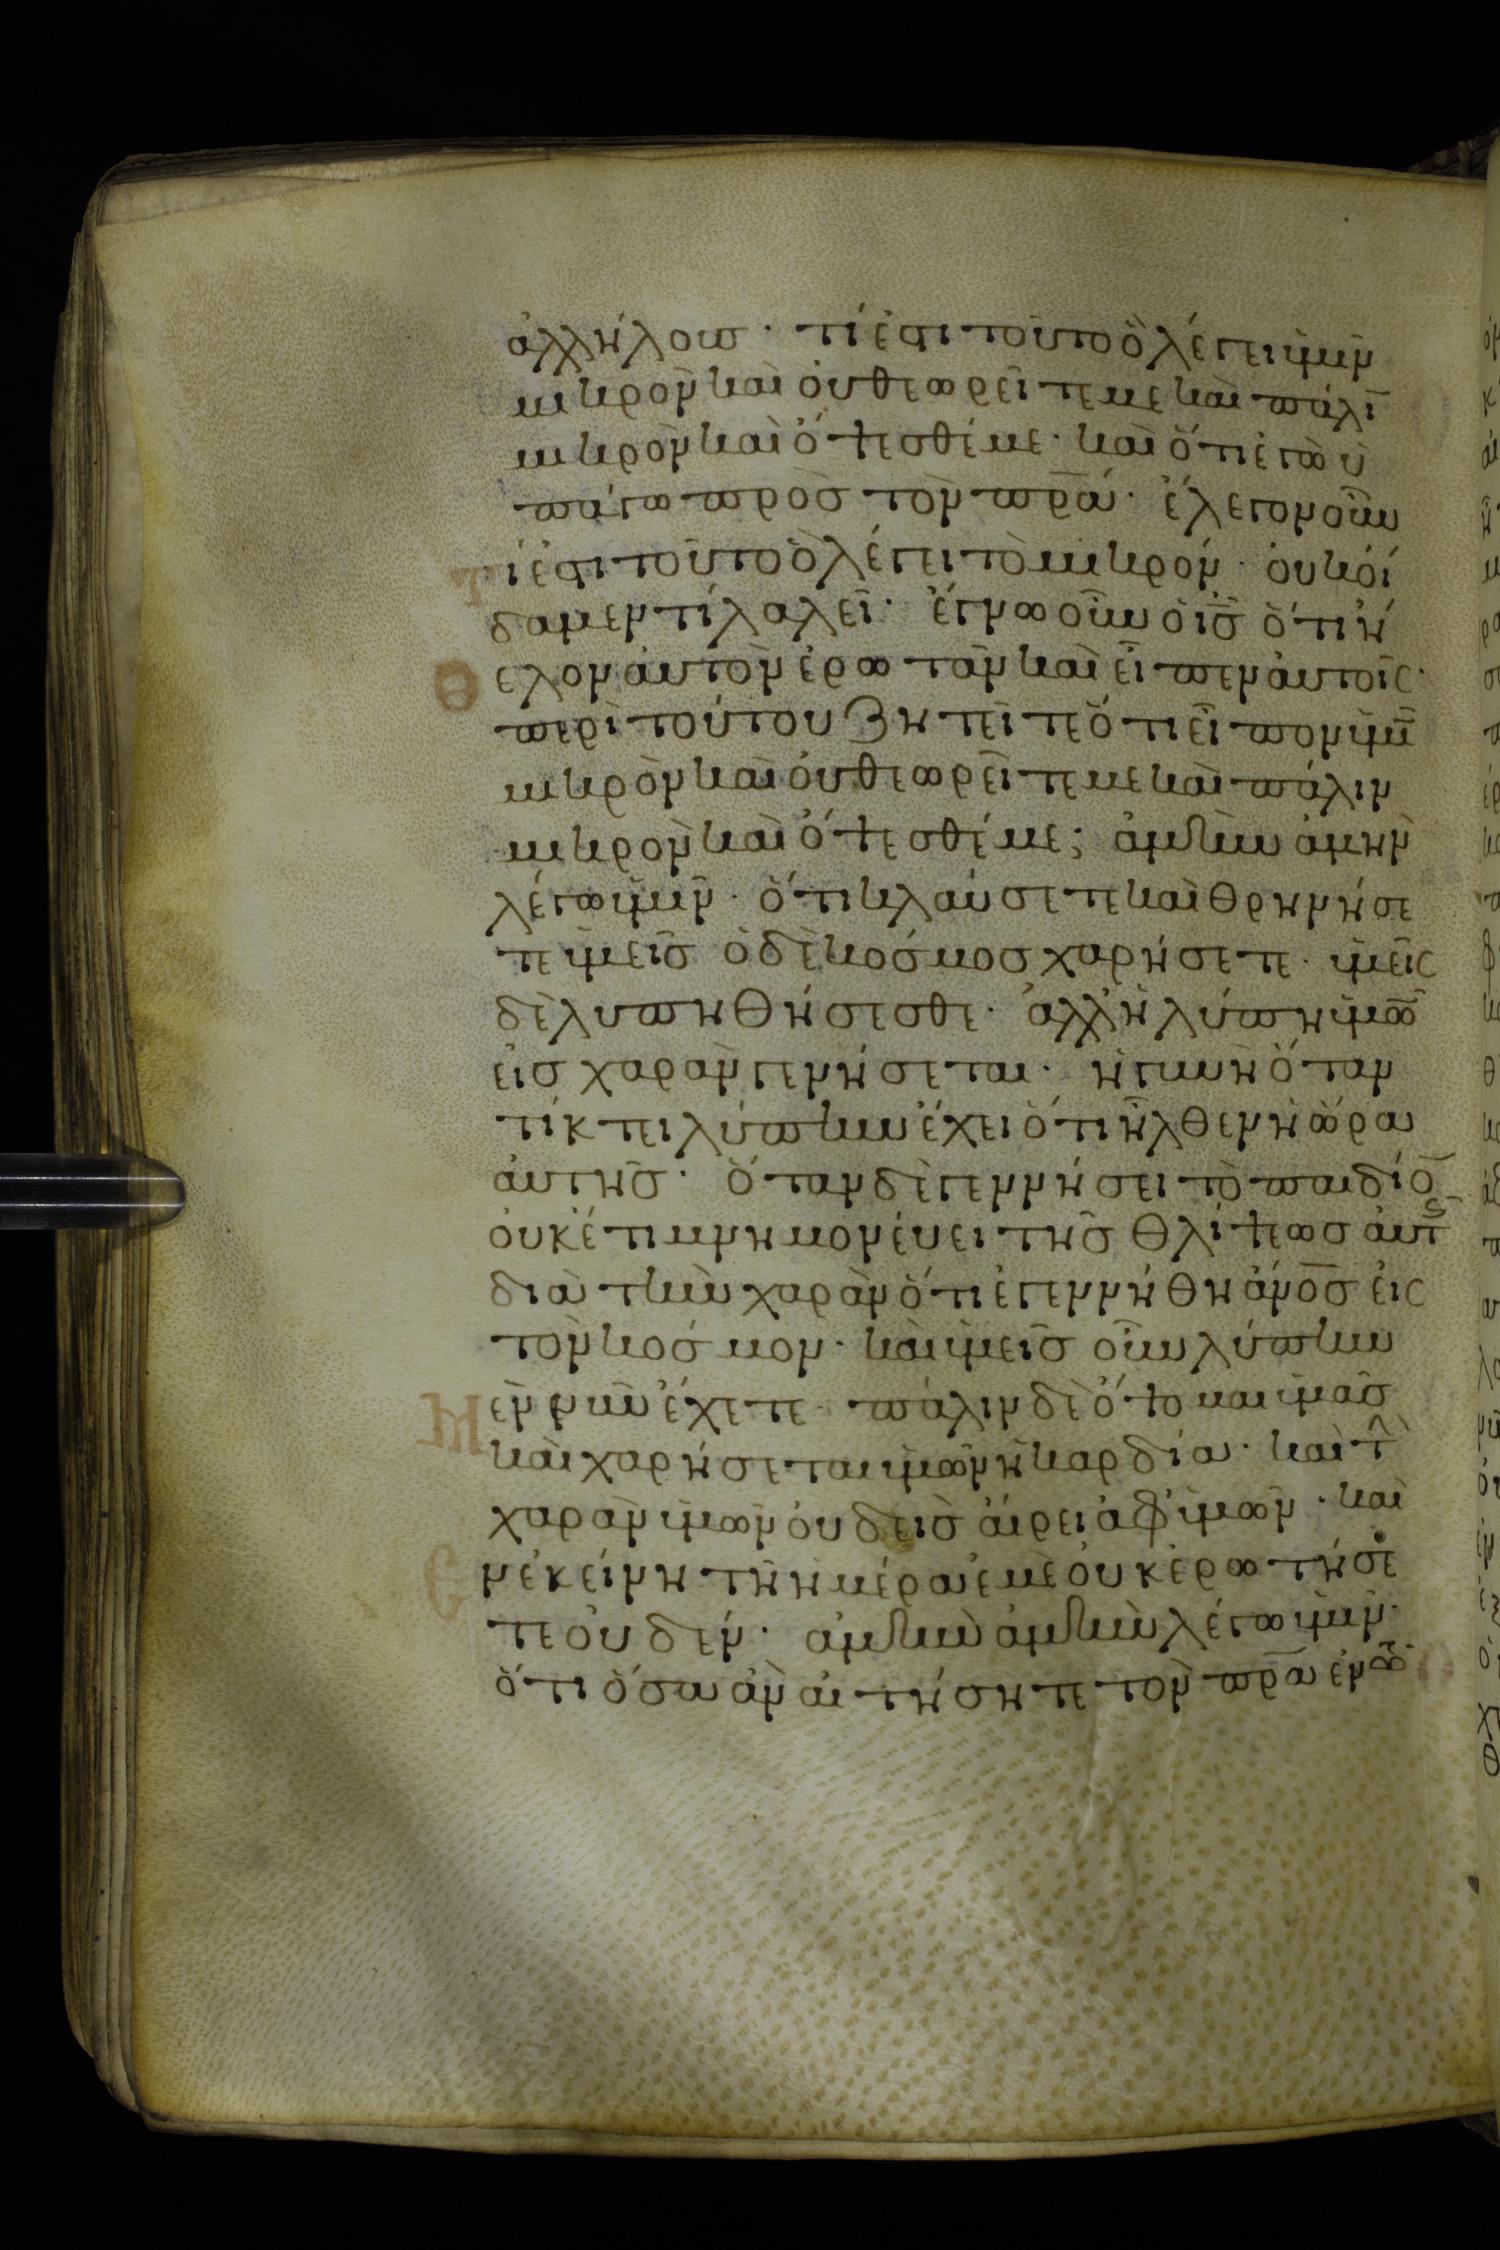 ἀλλήλους · τί ἐστι τοῦτο ὃ λέγει ἡμῖν
μικρὸν καὶ οὐ θεωρεῖτε με καὶ πάλῑ
μικρὸν καὶ ὄψεσθέ με · καὶ ὅτι ἐγὼ ὑ
πάγω πρὸς τὸν πρ̅α · ἔλεγον οὖν
τί ἐστι τοῦτο ὃ λέγει τὸ μικρόν · οὐκ οἴ
δαμεν τί λαλεῖ · ἔγνω οὖν ὁ ις̅ ὅτι ἤ
θελον αὐτὸν ἐρωτᾶν καὶ εἶπεν αὐτοῖς ·
περὶ τούτου ζητεῖτε ὅτι εἶπον ὑμῖν̅
μικρὸν καὶ οὐ θεωρεῖτε με καὶ πάλιν
μικρὸν καὶ ὄψεσθέ με ; ἀμὴν ἀμὴν
λέγω ὑμῖν · ὅτι κλαύσετε καὶ θρηνήσε
τε ὑμεῖς ὁ δὲ κόσμος χαρήσετε · ὑμεῖς
δὲ λυπηθήσεσθε · ἀλλ ἡ λύπη ὑμῶ̅
εἰς χαρὰν γενήσεται · ἡ γυνὴ ὅταν
τίκτει λύπην ἔχει ὅτι ἦλθεν ἡ ὥρα
αὐτῆς · ὅταν δὲ γεννήσει τὸ παιδίο̅
οὐκέτι μνημονεύει τῆς θλίψεως αὐτ͂ς
διὰ τὴν χαρὰν ὅτι ἐγεννήθη ἄνο̅ς εἰς
τὸν κόσμον · καὶ ὑμεῖς οὖν λύπην
μὲν νῦν ἔχετε · πάλιν δὲ ὄψομαι ὑμᾶς
καὶ χαρήσεται ὑμῶν ἡ καρδία · καὶ τ̂
χαρὰν ὑμῶν οὐδεὶς αἴρει ἀφ ὑμῶν · καὶ
ἐν ἐκείνη τῆ ἡμέρα ἐμὲ οὐκ ἐρωτήσε
τε οὐδέν · ἀμὴν ἀμὴν λέγω ὑμῖν ·
ὅτι ὅσα ἂν αἰτήσητε τὸν πρ̅α ἐν τῶ